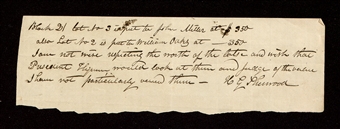 Block 21 Lot No 3 is put to John Miller at $350
also Lot No 2 is put to William Oakes at — 350
I am not wise respecting the worth of the lotts and wish that
President would look at them and judge of the value
I have not particularly viewed them — H. G. Sherwood